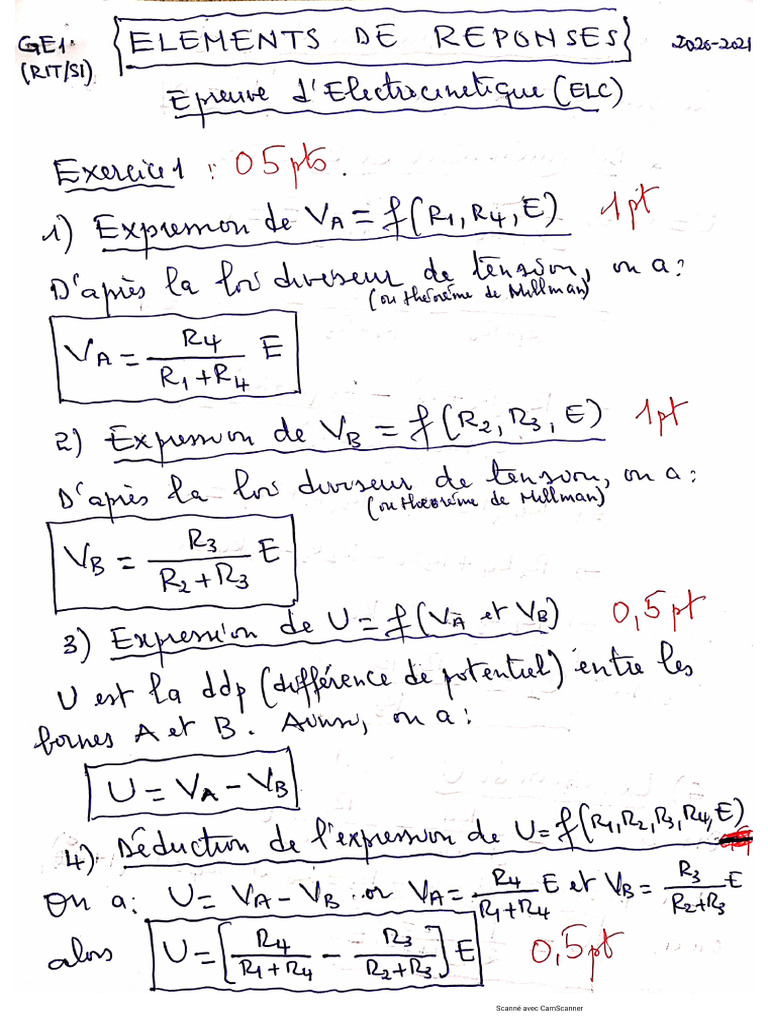 GE1: ELEMENTS DE REPONSES 2020-2021
(RIT/SI)
Epreuve d'Electrocinetique (ELC)
Exercice 1 : 05 pts.
1) Expression de VA = f(R1, R4, E) 1pt
D'après la loi diviseur de tension, on a :
(ou théorème de Millman)
VA = R4/(R1+R4) E
2) Expression de VB = f(R2, R3, E) 1pt
D'après la loi diviseur de tension, on a :
(ou theorème de Millman)
VB = R3/(R2+R3) E
3) Expression de U = f(VA et VB) 0,5pt
U est la ddp (différence de potentiel) entre les
bornes A et B. Ainsi, on a :
U = VA - VB
4) Déduction de l'expression de U = f(R1, R2, R3, R4, E)
On a : U = VA - VB or VA = R4/(R1+R4) E et VB = R3/(R2+R3) E
alors U = [R4/(R1+R4) - R3/(R2+R3)] E 0,5pt
Scanné avec CamScanner